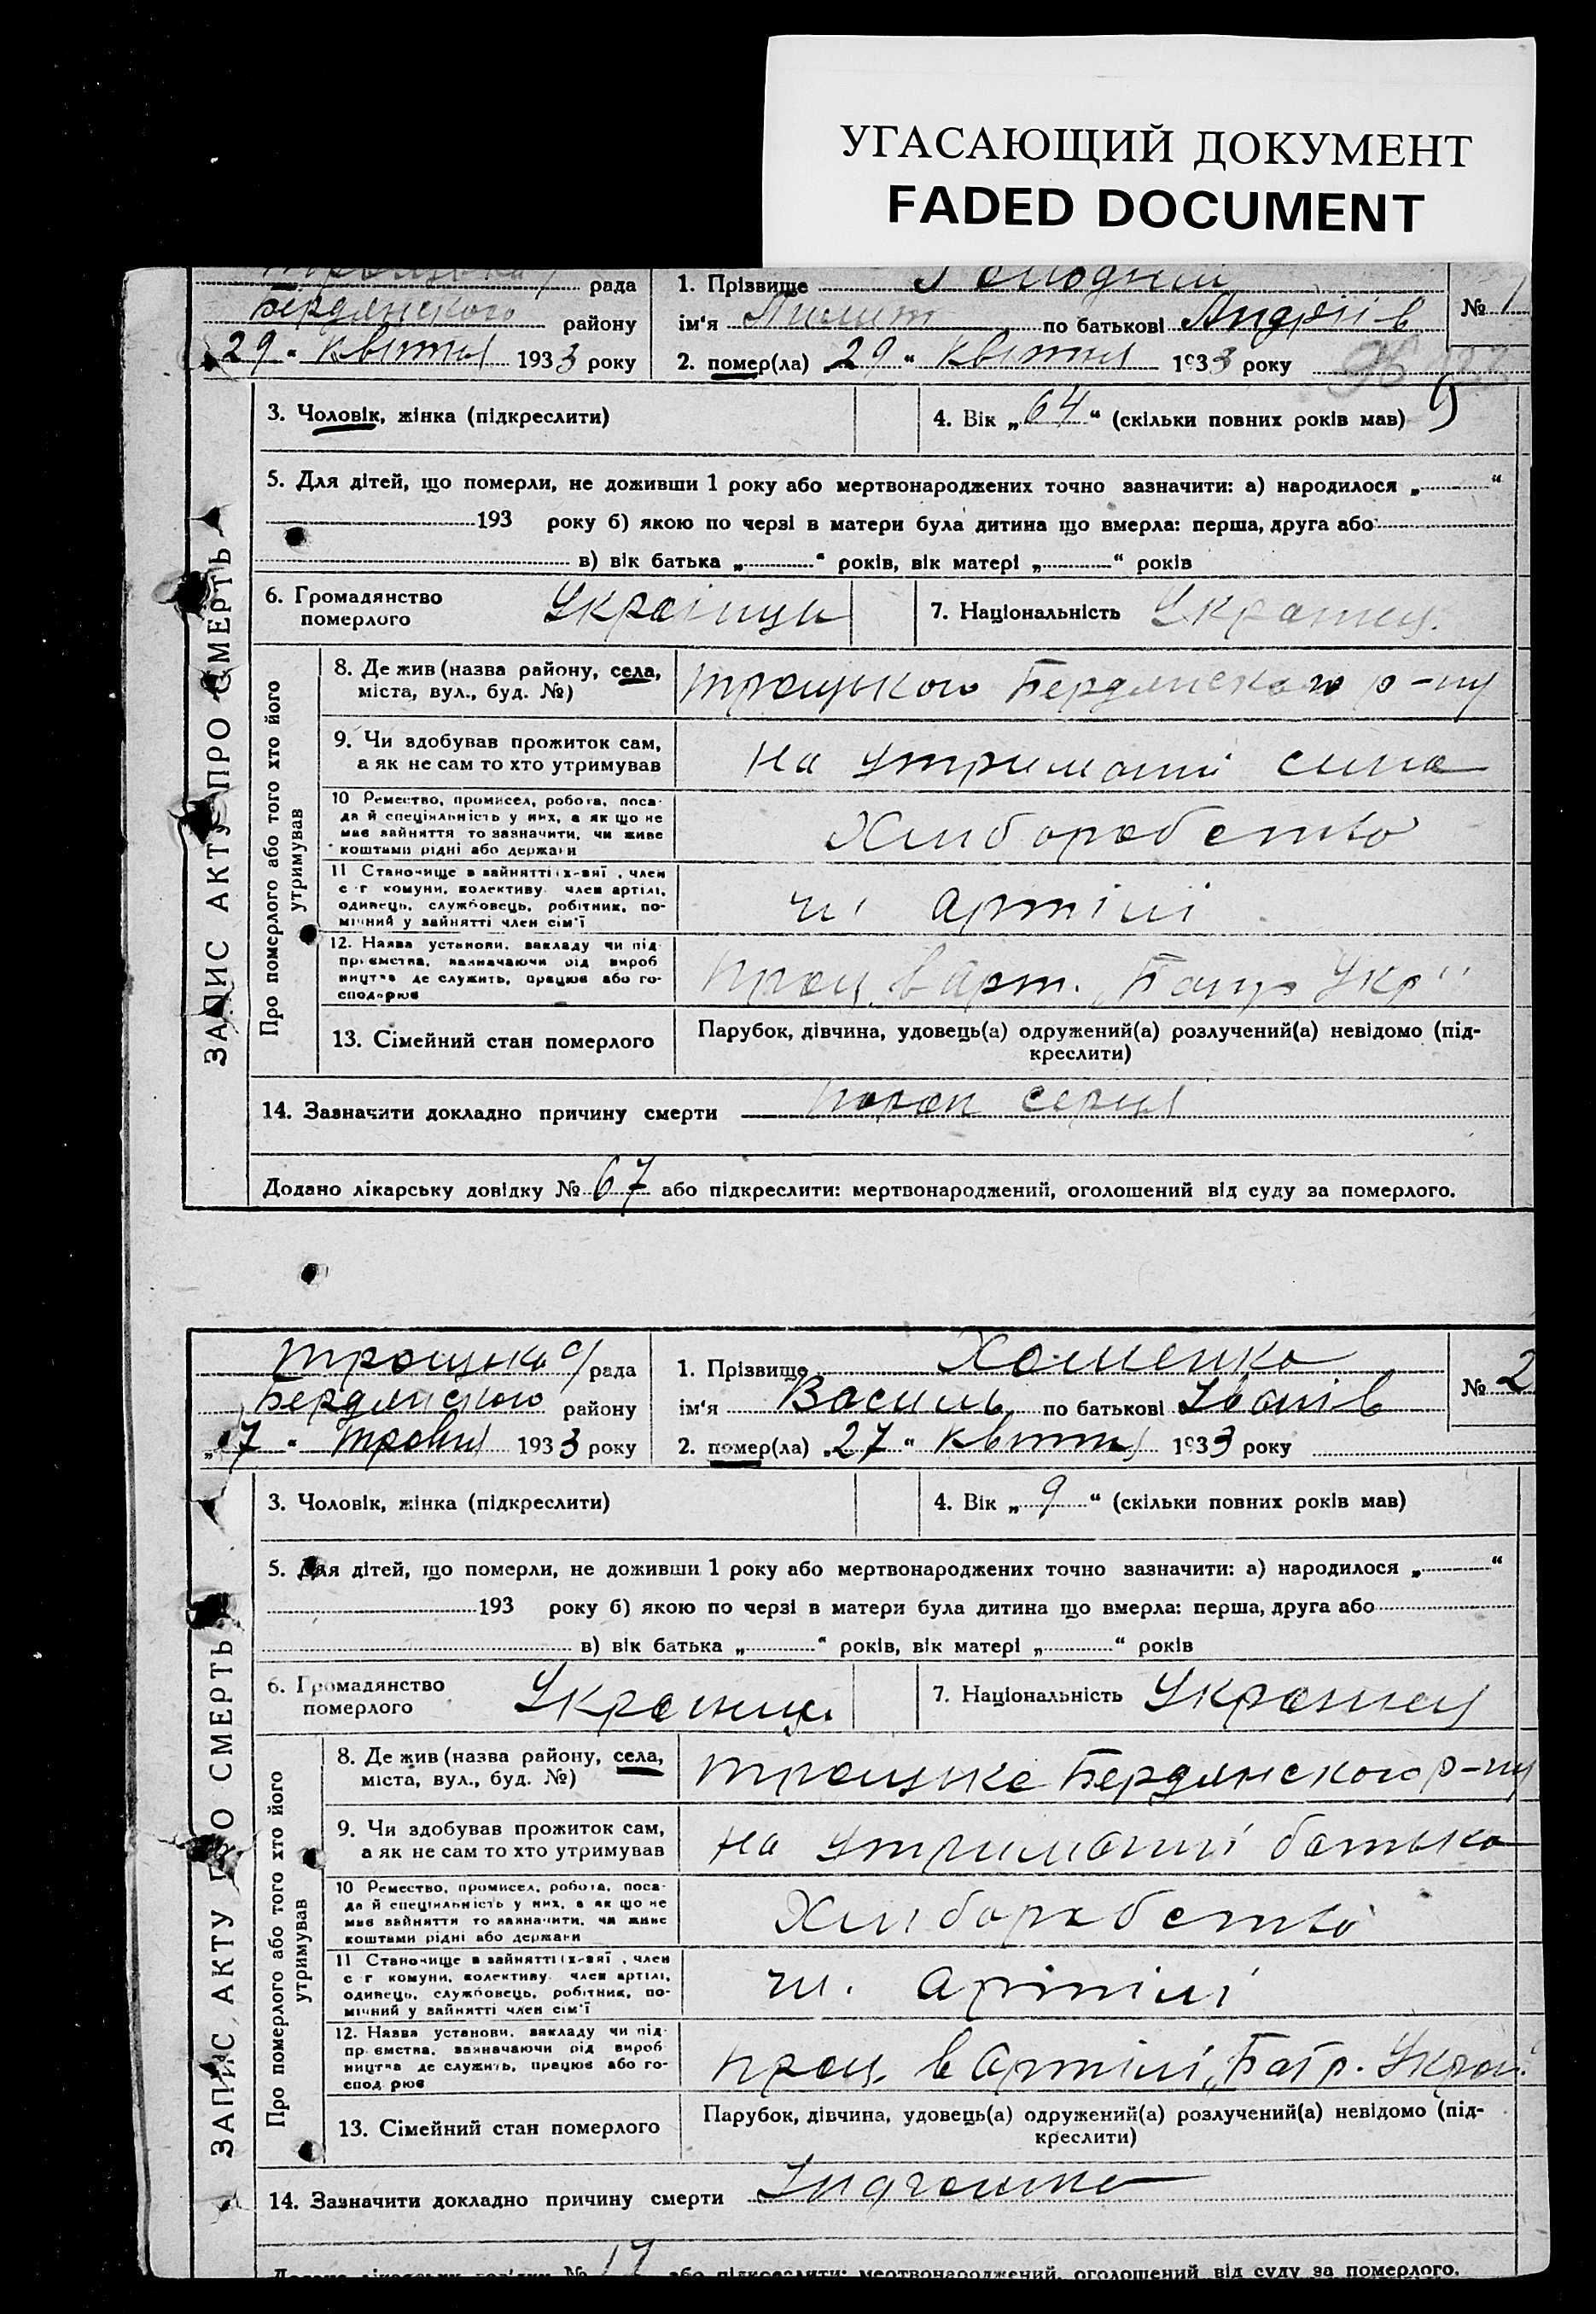 УГАСАЮЩИЙ ДОКУМЕНТ
FADED DOCUMENT
рада
1. Прізвище Голодний
№ 1
Бердянского району
ім'я Пилип по батькові Андріїв
29 " квітня 1933 року
2. помер(ла) 29 " квітня 1933 року
3. Чоловік, жінка (підкреслити)
4. Вік „ 64 “ (скільки повних років мав)
5. Для дітей, що померли, не доживши 1 року або мертвонароджених точно зазначити: а) народилося „ “
193 року б) якою по черзі в матери була дитина що вмерла: перша, друга або
в) вік батька „ “ років, вік матері „ “ років
6. Громадянство
померлого
Україн
7. Національність Українец.
ЗАПИС АКТУ ПРО СМЕРТЬ
Про померлого або того хто його
утримував
8. Де жив (назва району, села,
міста, вул., буд. №)
Троцького Бердянского р-ну
9. Чи здобував прожиток сам,
а як не сам то хто утримував
на утриманні сина
10 Ремество, промисел, робота, поса-
да й спеціяльність у них, а як що не
має зайняття то зазначити, чи живе
коштами рідні або держави
Хліборобство
11 Становище в зайнятті (х-вяї, член
с-г комуни, колективу, член артілі,
одинець, службовець, робітник, по-
мічний у зайнятті член сім'ї
чл артілі
12. Назва установи, закладу чи під-
приємства, зазначаючи рід вироб
ництва де служить, працює або го-
сподарює
Прац. в арт. „ Укр"
13. Сімейний стан померлого
Парубок, дівчина, удовець(а) одружений(а) розлучений(а) невідомо (під-
креслити)
14. Зазначити докладно причину смерти порок серця
Додано лікарську довідку № 67 або підкреслити: мертвонароджений, оголошений від суду за померлого.
Троцька с/рада
1. Прізвище Хоменко
№ 2
Бердянского району
ім'я Василь по батькові Іванів
„ 7 " травня 1933 року
2. помер(ла) „27 " квітня 1933 року
3. Чоловік, жінка (підкреслити)
4. Вік „ 9 “ (скільки повних років мав)
5. Для дітей, що померли, не доживши 1 року або мертвонароджених точно зазначити: а) народилося „ “
193 року б) якою по черзі в матери була дитина що вмерла: перша, друга або
в) вік батька „ “ років, вік матері „ “ років
6. Громадянство
померлого
Україн.
7. Національність Українец
ЗАПИС АКТУ ПРО СМЕРТЬ
Про померлого або того хто його
утримував
8. Де жив (назва району, села,
міста, вул., буд. №)
Троцьке Бердянского р-ну
9. Чи здобував прожиток сам,
а як не сам то хто утримував
на утриманні батька
10 Ремество, промисел, робота, поса-
да й спеціяльність у них, а як що не
має зайняття то зазначити, чи живе
коштами рідні або держави
Хліборобство
11 Становище в зайнятті (х-вяї, член
с-г комуни, колективу, член артілі,
одинець, службовець, робітник, по-
мічний у зайнятті член сім'ї
чл. артілі
12. Назва установи, закладу чи під-
приємства, зазначаючи рід вироб
ництва де служить, працює або го-
сподарює
прац. в артілі „Батр. Україн."
13. Сімейний стан померлого
Парубок, дівчина, удовець(а) одружений(а) розлучений(а) невідомо (під-
креслити)
14. Зазначити докладно причину смерти
Додано лікарську довідку № 17 або підкреслити: мертвонароджений, оголошений від суду за померлого.